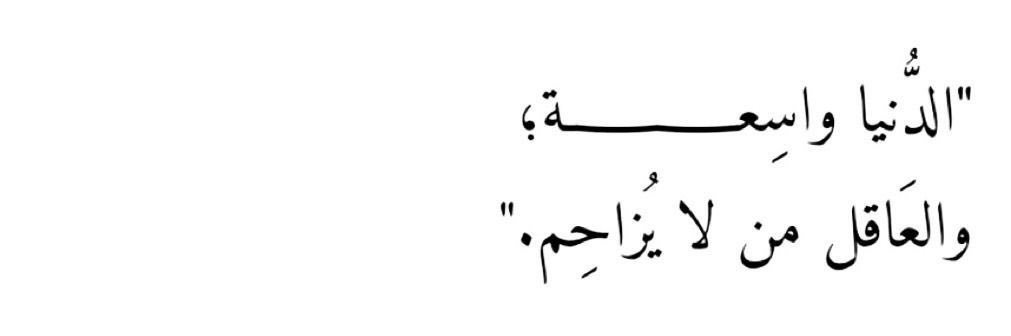 "الدُّنيا واسِعـــــــــة؛
والعَاقل من لا يُزاحِم."